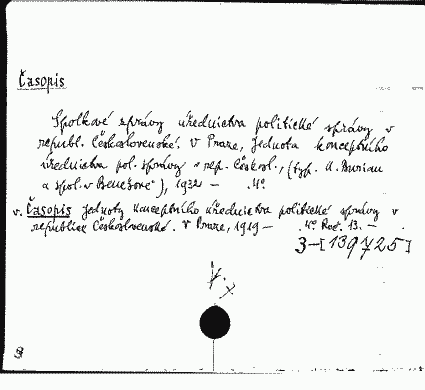 Časopis
Spolkové zprávy úřednictva politické správy v
republ. Československé. V Praze, Jednota konceptního
úřednictva pol. správy v rep. Českosl., (typ. K. Burian
a spol. v Benešově), 1932 — 4°.
v. Časopis Jednoty konceptního úřednictva politické správy v
republice Československé. V Praze, 1919 — 4° Roč. 13. —
3-[139725]